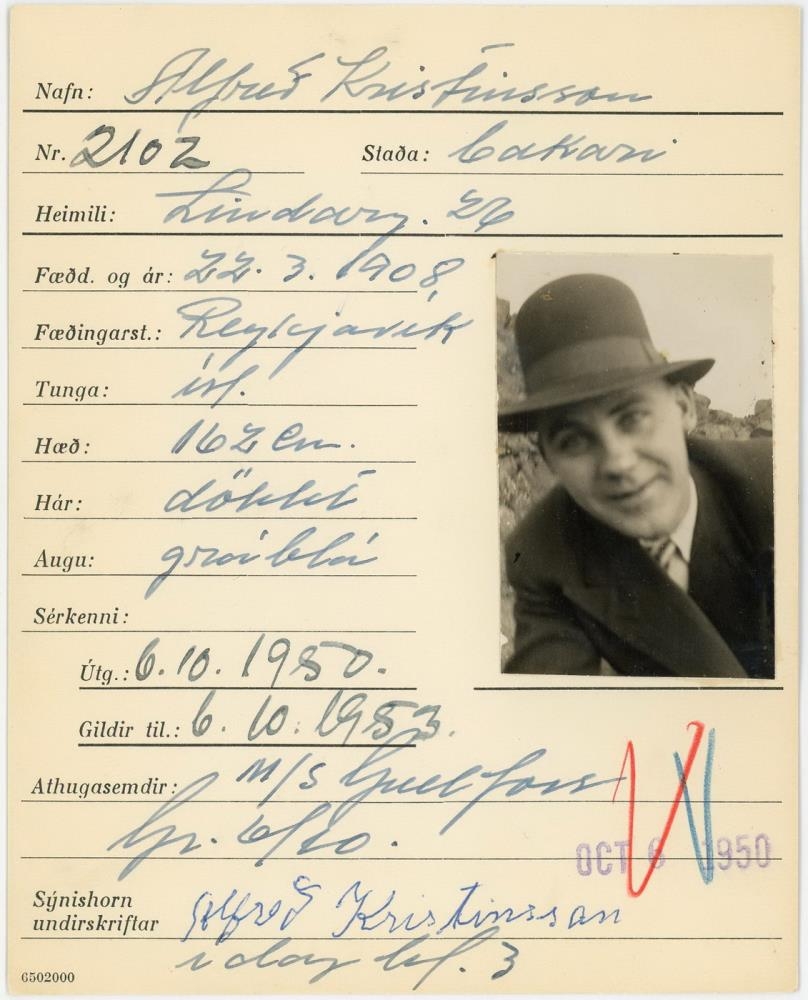 Nafn: Alfreð Kristinsson
Nr. 2102 Staða: bakari
Heimili: Lindarg. 26
Fæðd. og ár: 22. 3. 1908,
Fæðingarst.: Reykjavík
Tunga: ísl.
Hæð: 162 cm.
Hár: dökkt
Augu: gráblá
Sérkenni:
Útg.: 6. 10. 1950.
Gildir til.: 6. 10. 1953.
Athugasemdir: M/S Gullfoss
6/10.
OCT 6 1950
Sýnishorn
undirskriftar Alfreð Kristinsson
í dag kl. 3
6502000